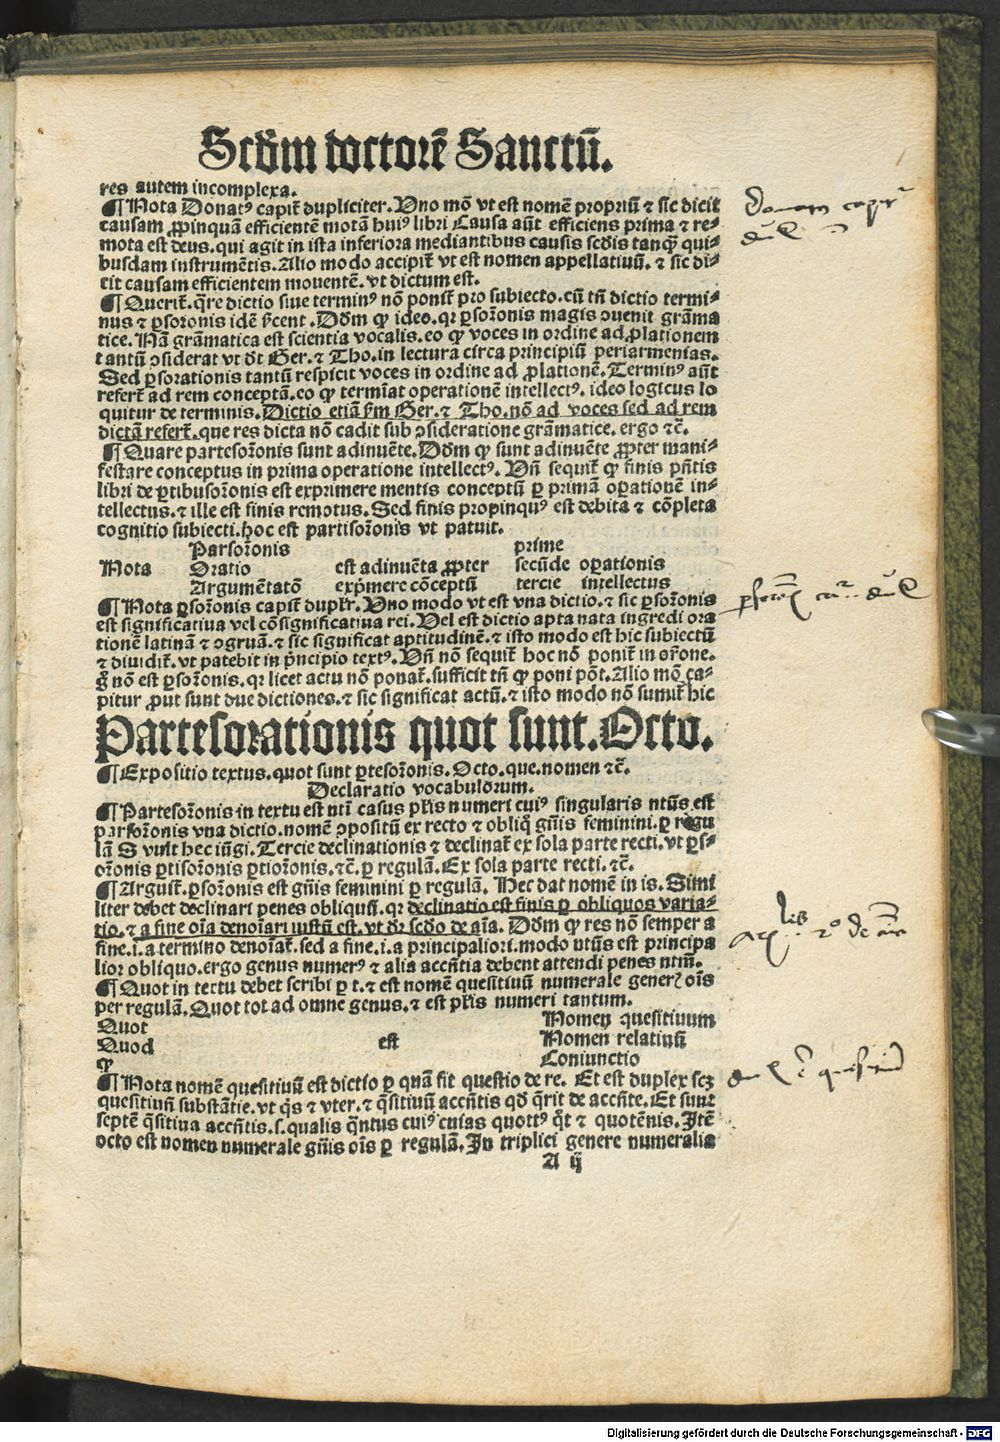 Scd̄m doctorē Sanctū.
res autem incomplexa.
¶ Nota Donatꝰ capit̄ dupliciter. Uno mō vt est nomē propriū ⁊ sic dicit
causam ꝓpinquā efficientē motā huiꝰ libri Causa aūt efficiens prima ⁊ re⸗
mota est deus. qui agit in ista inferiora mediantibus causis scd̄is tanqꝫ qui⸗
busdam instrumētis. Alio modo accipit̄ vt est nomen appellatiuū. ⁊ sic di⸗
cit causam efficientem mouentē. vt dictum est.
¶ Querit̄. q̄re dictio siue terminꝰ nō ponit̄ pro subiecto. cū tn̄ dictio termi⸗
nus ⁊ ꝑsorōnis idē dicent. Dd̄m ꝙ ideo. qr ꝑsorōnis magis ꝯuenit grāma
tice. Nā grāmatica est scientia vocalis. eo ꝙ voces in ordine ad ꝓlationem
tantū ꝯsiderat vt dt̄ Ber. ⁊ Tho. in lectura circa principiū periarmenias.
Sed ꝑsorationis tantū respicit voces in ordine ad ꝓlationē. Terminꝰ aūt
refert̄ ad rem conceptā. eo ꝙ termīat operationē intellectꝰ. ideo logicus lo
quitur de terminis. Dictio etiā ẜm Ber. ⁊ Tho. nō ad voces sed ad rem
dictā refert̄. que res dicta nō cadit sub ꝯsideratione grāmatice. ergo ⁊c̄.
¶ Quare partesorōnis sunt adinuēte. Dd̄m ꝙ sunt adinuēte ꝓpter mani⸗
festare conceptus in prima operatione intellectꝰ. Vn̄ sequit̄ ꝙ finis pn̄tis
libri de ꝑtibusorōnis est exprimere mentis conceptū ꝑ primā oꝑationē in⸗
tellectus. ⁊ ille est finis remotus. Sed finis propinquꝰ est debita ⁊ cōpleta
cognitio subiecti. hoc est partisorōnis vt patuit.
Parsorōnis prime
Nota Oratio est adinuēta ꝓpter secūde oꝑationis
Argumētatō exp̄mere cōceptū tercie intellectus
¶ Nota ꝑsorōnis capit̄ duplr̄. Uno modo vt est vna dictio. ⁊ sic ꝑsorōnis
est significatiua vel cōsignificatiua rei. Vel est dictio apta nata ingredi ora
tionē latinā ⁊ ꝯgruā. ⁊ sic significat aptitudinē. ⁊ isto modo est hic subiectū
⁊ diuidit̄. vt patebit in p̄ncipio textꝰ. Vn̄ nō sequit̄ hoc nō ponit̄ in orōne.
g̊ nō est ꝑsorōnis. qr licet actu nō ponat̄. sufficit tn̄ ꝙ poni pōt. Alio mō ca⸗
pitur ꝓut sunt due dictiones. ⁊ sic significat actū. ⁊ isto modo nō sumit̄ hic
Partesorationis quot sunt. Octo.
¶ Expositio textus. quot sunt ꝑtesorōnis. Octo. que. nomen ⁊c̄.
Declaratio vocabulorum.
¶ Partesorōnis in textu est nt̄i casus pl̄is numeri cuiꝰ singularis nt̄us est
parsorōnis vna dictio. nomē ꝯpositū ex recto ⁊ obliq̊ gn̄is feminini. ꝑ regu
lā S vult hec iūgi. Tercie declinationis ⁊ declinat̄ ex sola parte recti. vt ꝑs⸗
orōnis ꝑtisorōnis ꝑtiorōnis. ⁊c̄. ꝑ regulā. Ex sola parte recti. ⁊c̄.
¶ Arguit̄. ꝑsorōnis est gn̄is feminini ꝑ regulā. Hec dat nomē in is. Simi
liter debet declinari penes obliquū. qr declinatio est finis ꝑ obliquos varia⸗
tio. ⁊ a fine oīa denoīari iustū est. vt dr̄ scd̄o de aīa. Dd̄m ꝙ res nō semper a
fine. i. a termino denoīat̄. sed a fine. i. a principaliori. modo nt̄us est principa
lior obliquo. ergo genus numerꝰ ⁊ alia accn̄tia debent attendi penes ntm̄.
¶ Quot in textu debet scribi ꝑ t. ⁊ est nomē quesitiuū numerale generꝭ oīs
per regulā. Quot tot ad omne genus. ⁊ est pl̄is numeri tantum.
Quot Nomen quesitiuum
Quod est Nomen relatiuū
ꝙ Coniunctio
¶ Nota nomē quesitiuū est dictio ꝑ quā fit questio de re. Et est duplex scꝫ
quesitiuū substātie. vt q̄s ⁊ vter. ⁊ q̄sitiuū accn̄tis qd̄ q̄rit de accn̄te. Et sunt
septē q̄sitiua accn̄tis. s. qualis q̄ntus cuiꝰ cuias quottꝰ q̊t ⁊ quotēnis. Itē
octo est nomen numerale gn̄is oīs ꝑ regulā. In triplici genere numeralia
A ij
Digitalisierung gefördert durch die Deutsche Forschungsgemeinschaft - DFG